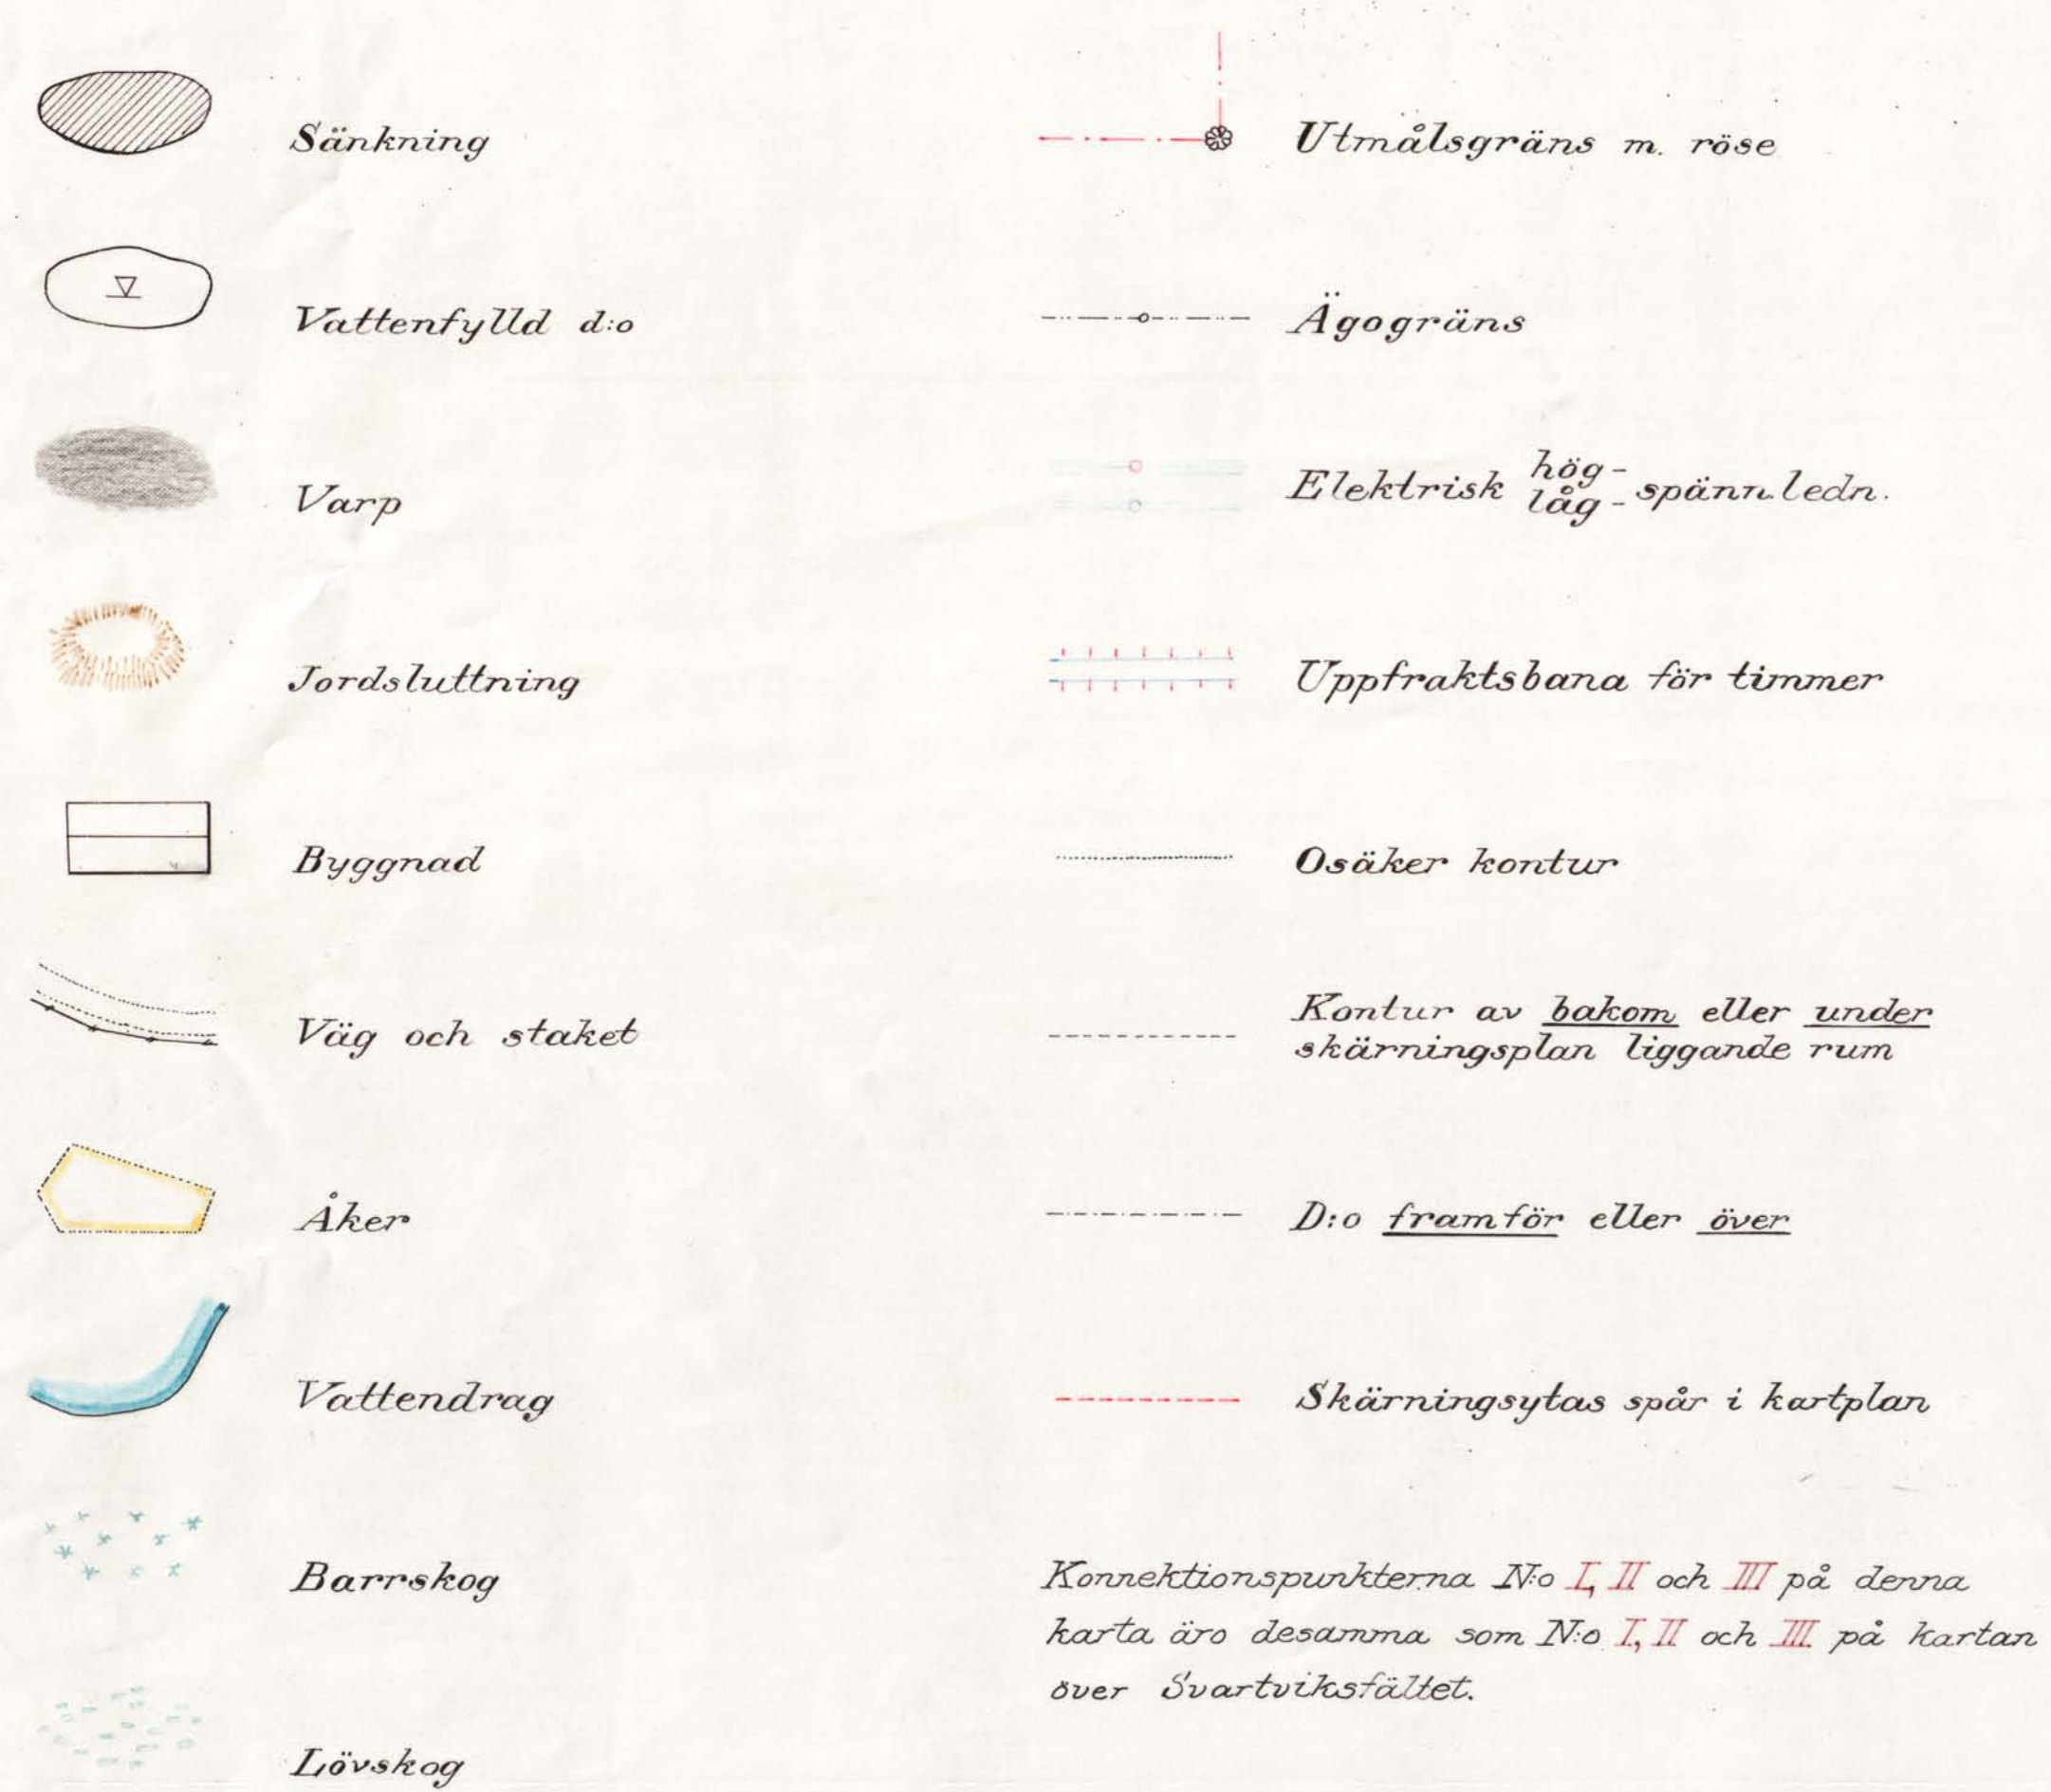 Sänkning
Vattenfylld d:o
Varp
Jordsluttning
Byggnad
Väg och staket
Åker
Vattendrag
Barrskog
Lövskog
Utmålsgräns m. röse
Ägogräns
Elektrisk hög- låg- spänn.ledn.
Uppfraktsbana för timmer
Osäker kontur
Kontur av bakom eller under
skärningsplan liggande rum
D:o framför eller över
Skärningsytas spår i kartplan
Konnektionspunkterna N:o I, II och III på denna
karta äro desamma som N:o I, II och III på kartan
över Svartviksfältet.